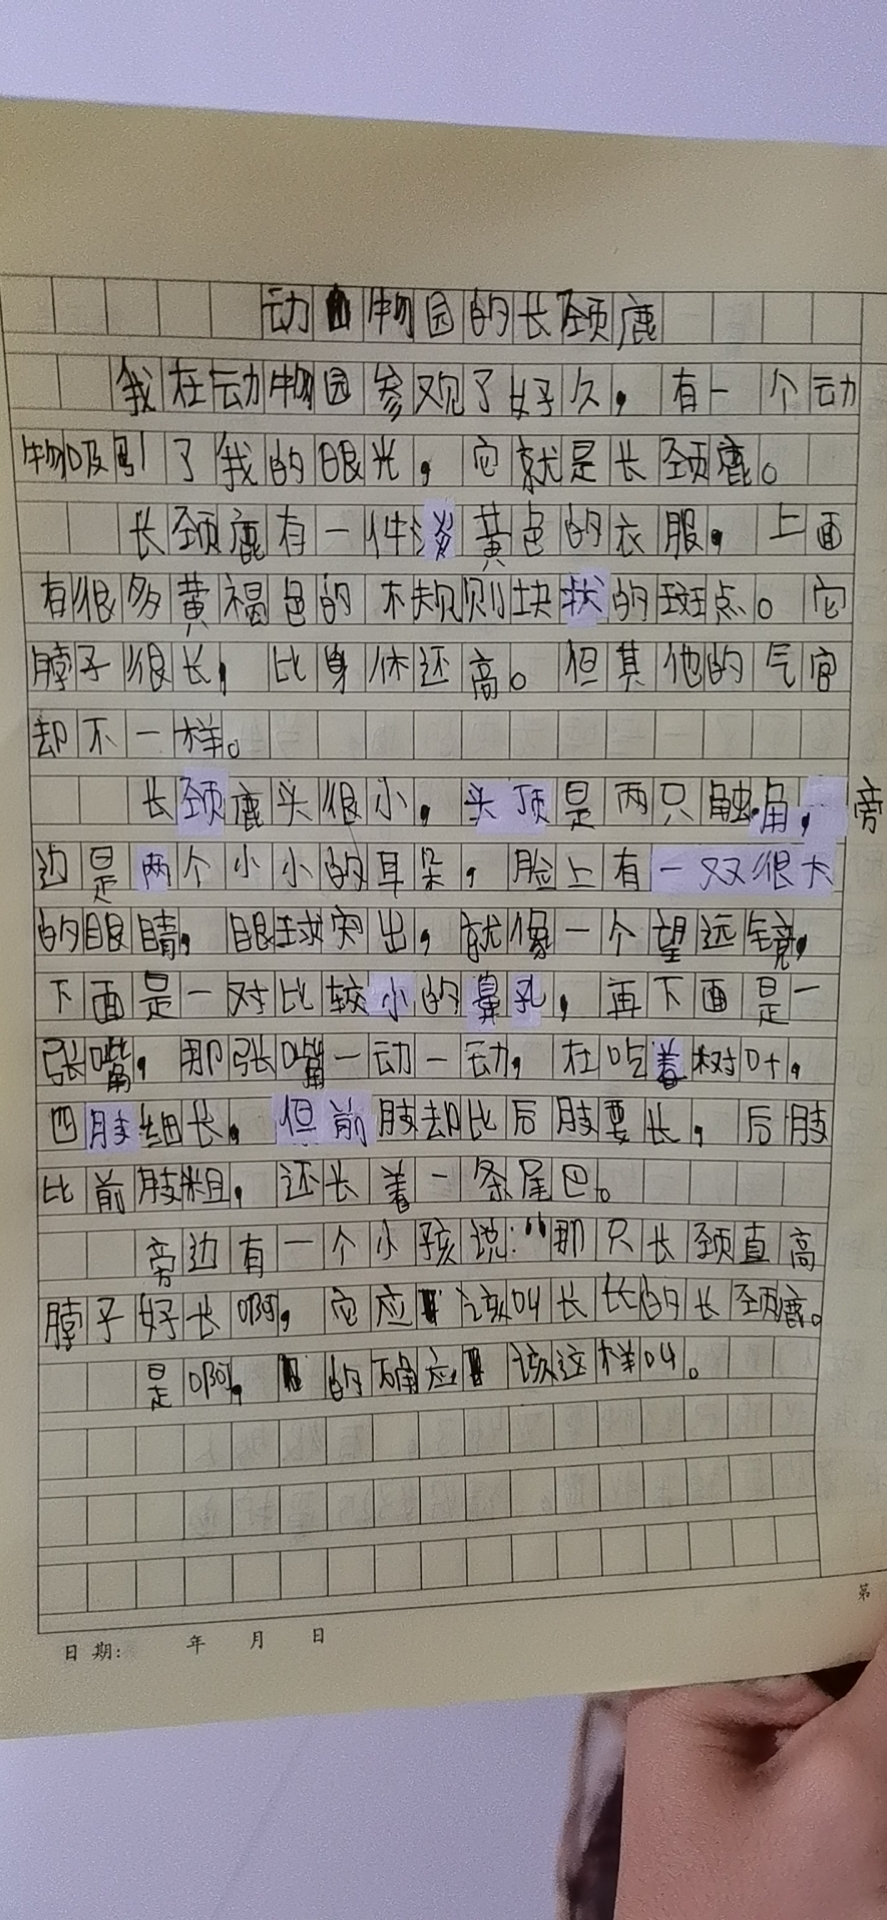 动物园的长颈鹿
我在动物园参观了好久，有一个动
物吸引了我的眼光，它就是长颈鹿。
长颈鹿有一件淡黄色的衣服，上面
有很多黄褐色的不规则块状的斑点。它
脖子很长，比身体还高。但其他的气官
却不一样。
长颈鹿头很小，头顶是两只触角，旁
边是两个小小的耳朵，脸上有一双很大
的眼睛，眼球突出，就像一个望远镜，
下面是一对比较小的鼻孔，再下面是一
张嘴，那张嘴一动一动，在吃着树叶，
四肢细长，但前肢却比后肢要长，后肢
比前肢粗，还长着一条尾巴。
旁边有一个小孩说：“那只长颈直高
脖子好长啊，它应该叫长长的长颈鹿。
是啊，的确应该这样叫。
日期：　年　月　日
第